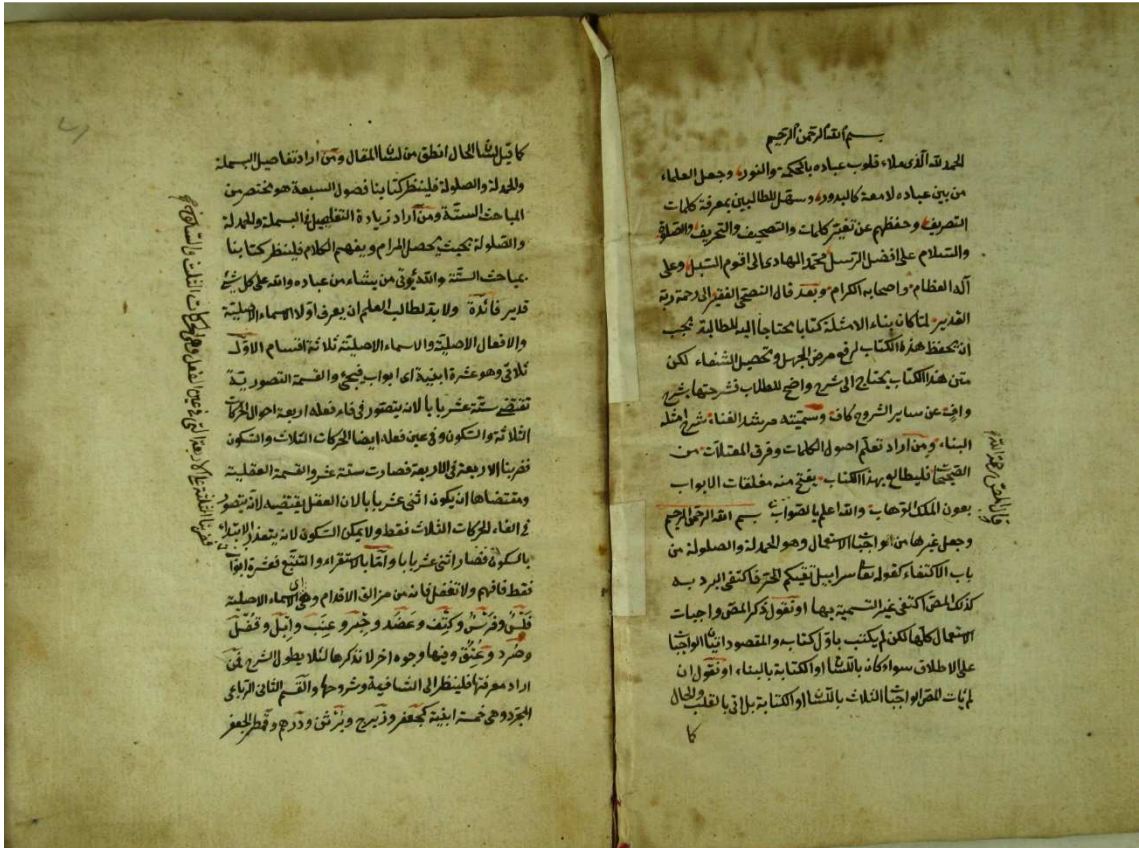 بسم الله الرحمن الرحيم
الحمد لله الذى ملاء قلوب عباده بالحكمة والنور وجعل العلماء
من بين عباده لامعة كالبدور وسهل للطالبين بمعرفة كلمات
التصريف وحفظهم عن تغيّر كلمات والتصحيف والتحريف والصلوة
والسّلام على افضل الرّسل محمّد الهادى الى اقوم السّبل وعلى
آله العظام واصحابه الكرام وبعد قال الفقير الى رحمة ربّه
القدير لمّا كان بناء الامثلة كتابا محتاجا اليه للطالبة يجب
ان يحفظ هذه الكتاب لرفع مرض الجهل وتحصيل الشّفاء لكن
متن هذا الكتاب يحتاج الى شرح واضح للطلاب فشرحتها بشرح
وافية عن ساير الشروح كافة وسمّيته مرشد الغناء شرح امثلة
البناء ومن اراد تعلّم اصول الكلمات وفرق المعتلات من
الصّحيحا فليطالع بهذا الكتاب يفتح منه مغلقات الابواب
بعون الملك الوهاب والله اعلم بالصّواب بسم الله الرحمن الرحيم
وجعل غيرها من الواجبا الاستعمال وهو الحمدلة والصلولة من
باب الاكتفاء كقوله تعا سرابيل تقيكم الحرّ فاكتفى البرد به
كذلك المص اكتفى غير التسمية بها او نقول ذكر المص واجبات
الاستعمال كلّها لكن لم يكتب باوّل كتابه والمقصود اتيان الواجبا
على الاطلاق سواء كان باللّسا او الكتابة بالبناء او نقول ان
لم يات المص الواجبا الثلاث باللّسا او الكتابة بل اتى بالقلب والحال
كا
قال المص رحمة الله
كا قيل لسا الحال انطق من لسا المقال ومن اراد تفاصيل البسملة
والحمدلة والصلولة فلينظر كتابنا فصول السبعة هو مختصر من
المباحث الستّة ومن اراد زيادة التفاصيل فى البسملة والحمدلة
والصّلولة بحيث يحصل المرام ويفهم الكلام فلينظر كتابنا
بمباحث الستّة والله يؤتى من يشاء من عباده والله على كل شئ
قدير فائدة ولا بد لطالب العلم ان يعرف اوّلا الاسماء الاصليّة
والافعال الاصليّة والاسماء الاصليّة ثلاثة اقسام الاوّل
ثلاثى وهو عشرة ابنية اى ابواب فيجئ والقسمة التصوريّة
تقتضى ستّة عشر بابا لانه يتصوّر فى فاء فعله اربعة احوال الحركات
الثلاثة والسّكون وفى عين فعله ايضا الحركات الثلاث والسّكون
فضربنا الاربعة فى الاربعة فصارت ستّة عشر والقسمة العقلية
ومقتضاها ان يكون اثنى عشر بابا لان العقل يقتضيه لانه يتصوّر
فى الفاء الحركات الثلاث فقط ولا يمكن السّكون لانه يتعذر الابتداء
بالسّكون فصار اثنى عشر بابا وامّا بالاستقراء والتتبّع فعشرة ابواب
فقط فافهم ولا تغفل فانه من مزالق الاقدام وهى الاسماء الاصلية
فلس وفرس وكتف وعضد وحبر وعنب وابل وقفل
وصرد وعنق وفيها وجوه اخر لا نذكرها لئلا يطول الشرح فمن
اراد معرفتها فلينظر الى الشافية وشروحها والقسم الثانى الرباعى
المجرّد وهى خمسة ابنية كجعفر وزبرج وبرثن ودرهم وقمطر الجعفر
فضربنا الثلثة على الاربعة التى فى عين الفعل وهى الحركات الثلث والسّكون